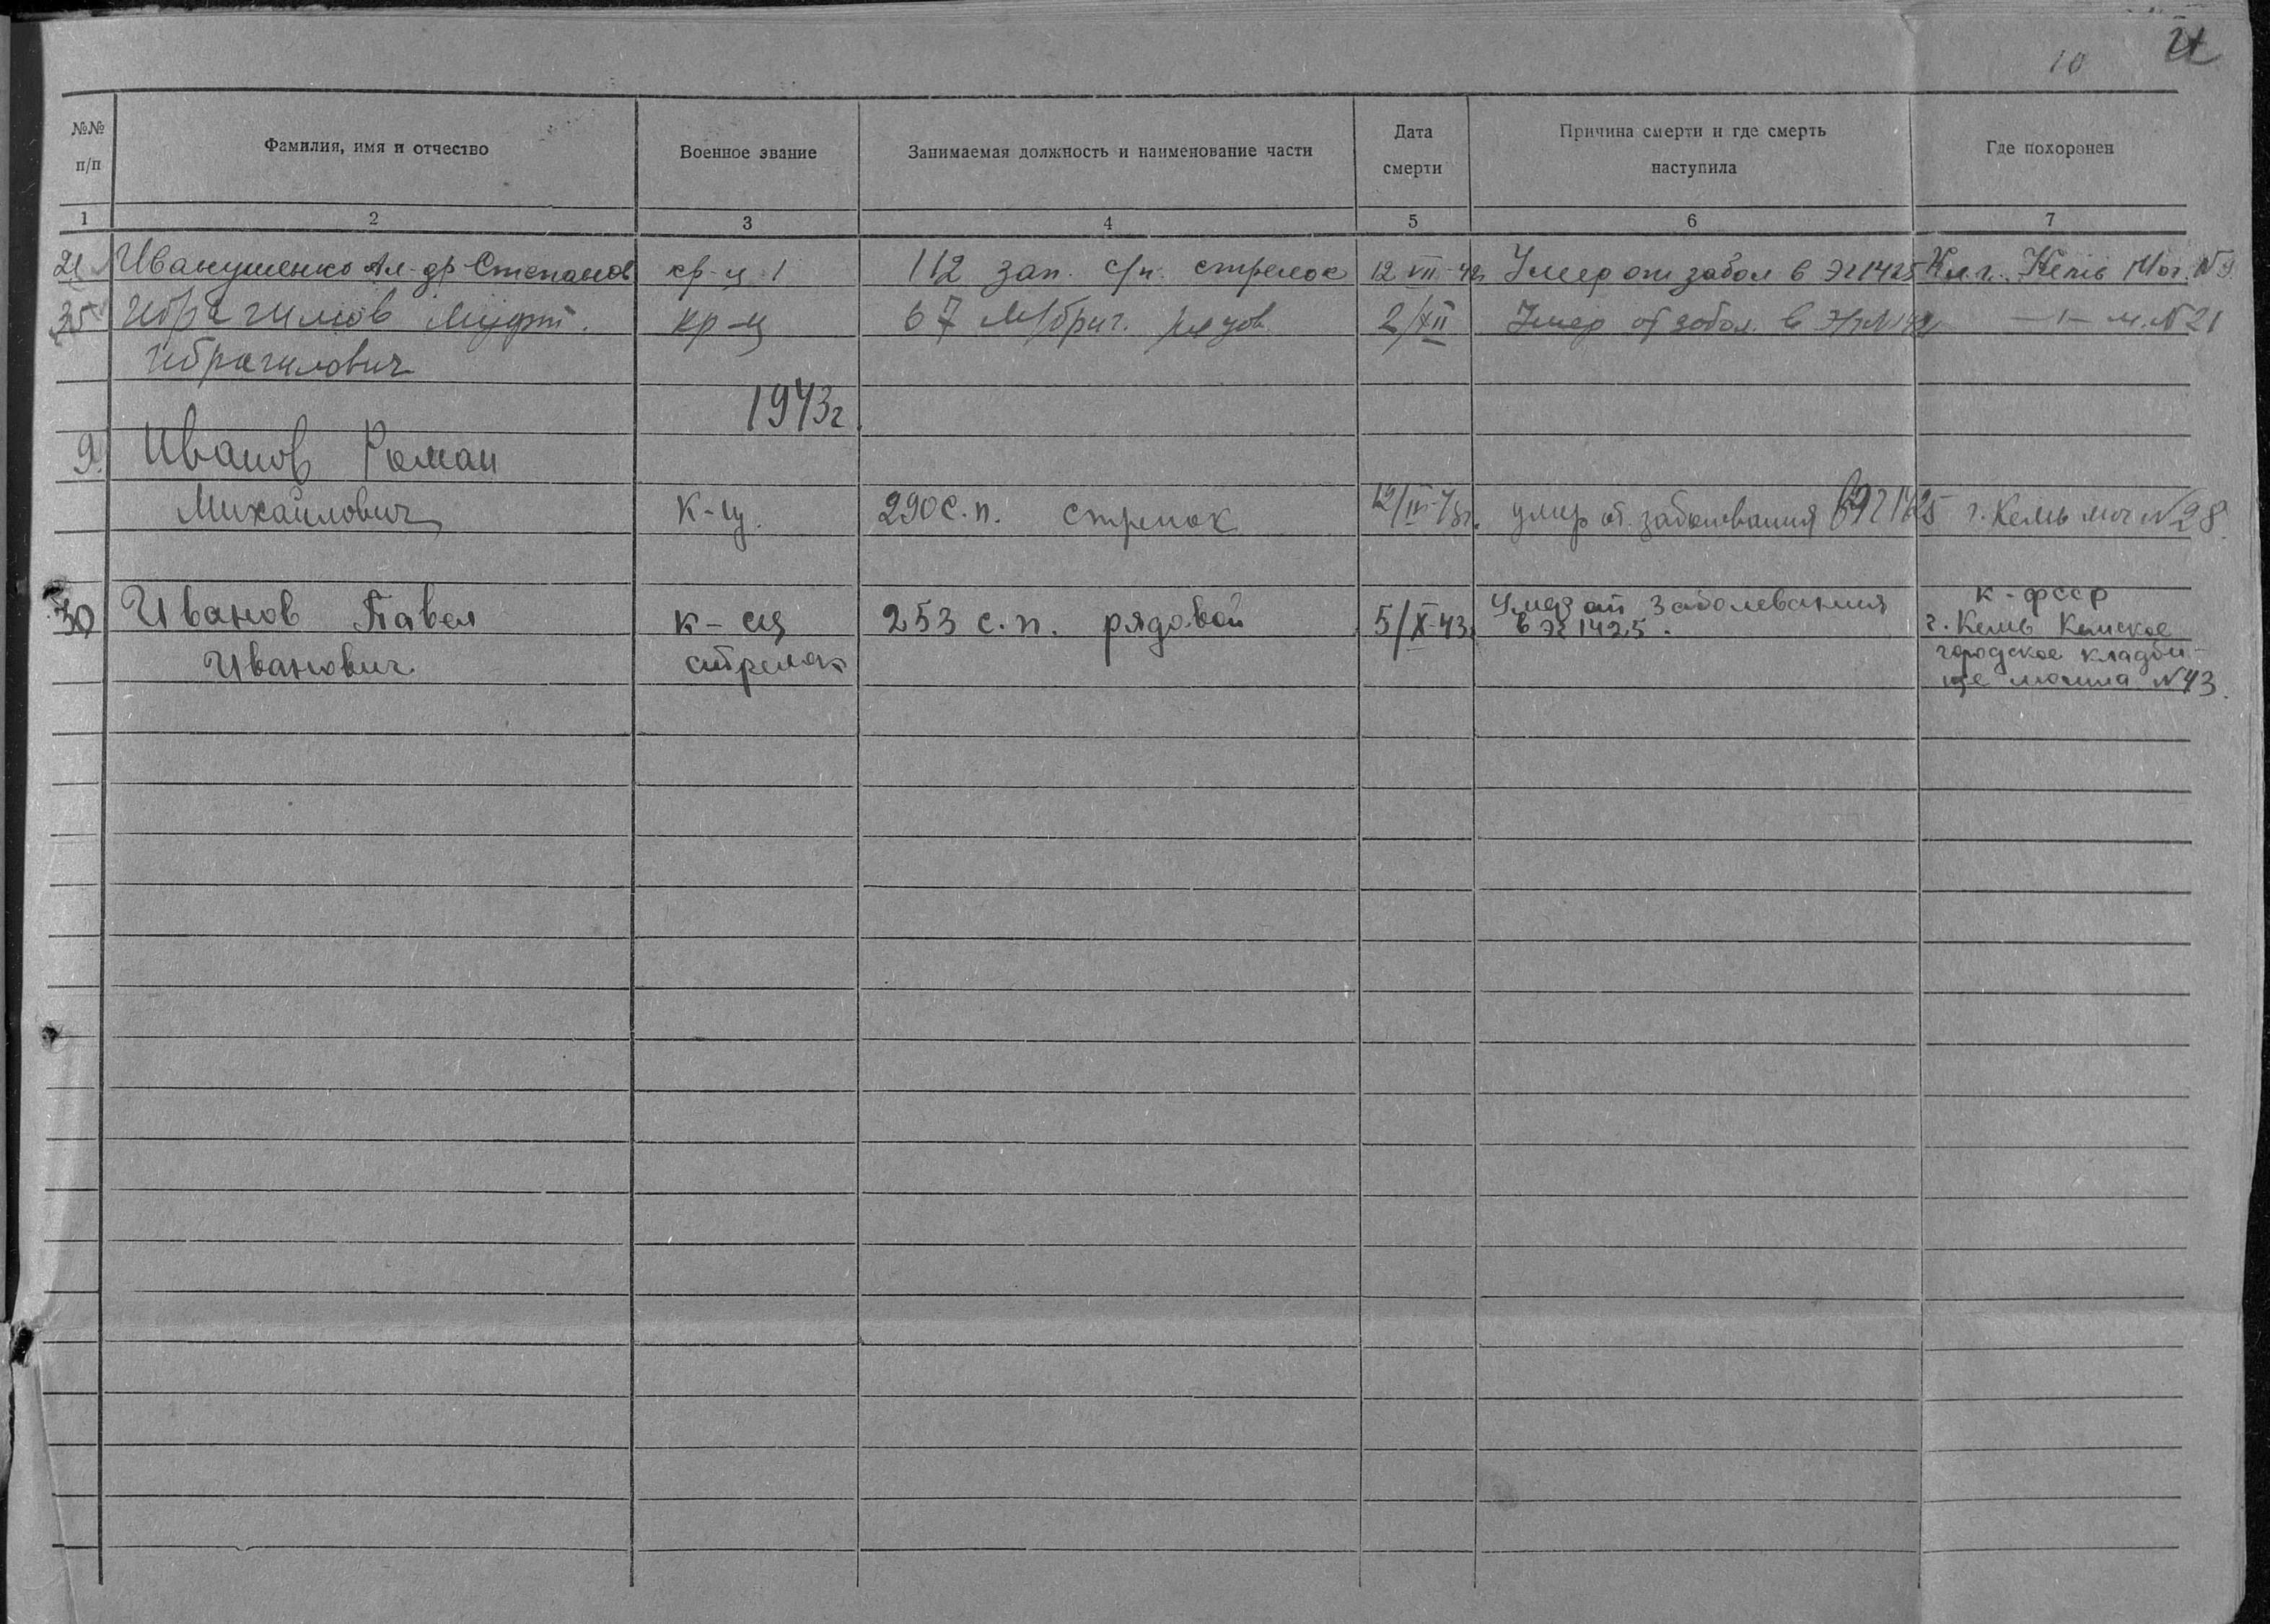 10 И
№№ п/п
Фамилия, имя и отчество
Военное звание
Занимаемая должность и наименование части
Дата смерти
Причина смерти и где смерть наступила
Где похоронен
1 2 3 4 5 6 7
21 Иванушенко Ал-др Степанов кр-ц 112 зап. с/п. стрелок 12 VII-42 Умер от забол в ЭГ 1425 г. Кемь Мог. N 9
35 Ибрагимов кр-ц 67 М/бриг. рядов. 2/XII Умер от забол. в —"— м. N 21
Ибрагимович
1943г.
9. Иванов Роман
Михайлович К-ц. 290 с.п. стрелок умер от заболевания в ЭГ 1425 г. Кемь мог N 28.
30 Иванов Павел к-ец 253 с.п. рядовой 5/X-43. Умер от заболевания в ЭГ 1425. к-фсср г. Кемь Кемское
Иванович стрелок городское кладби-
ще могила N 43.